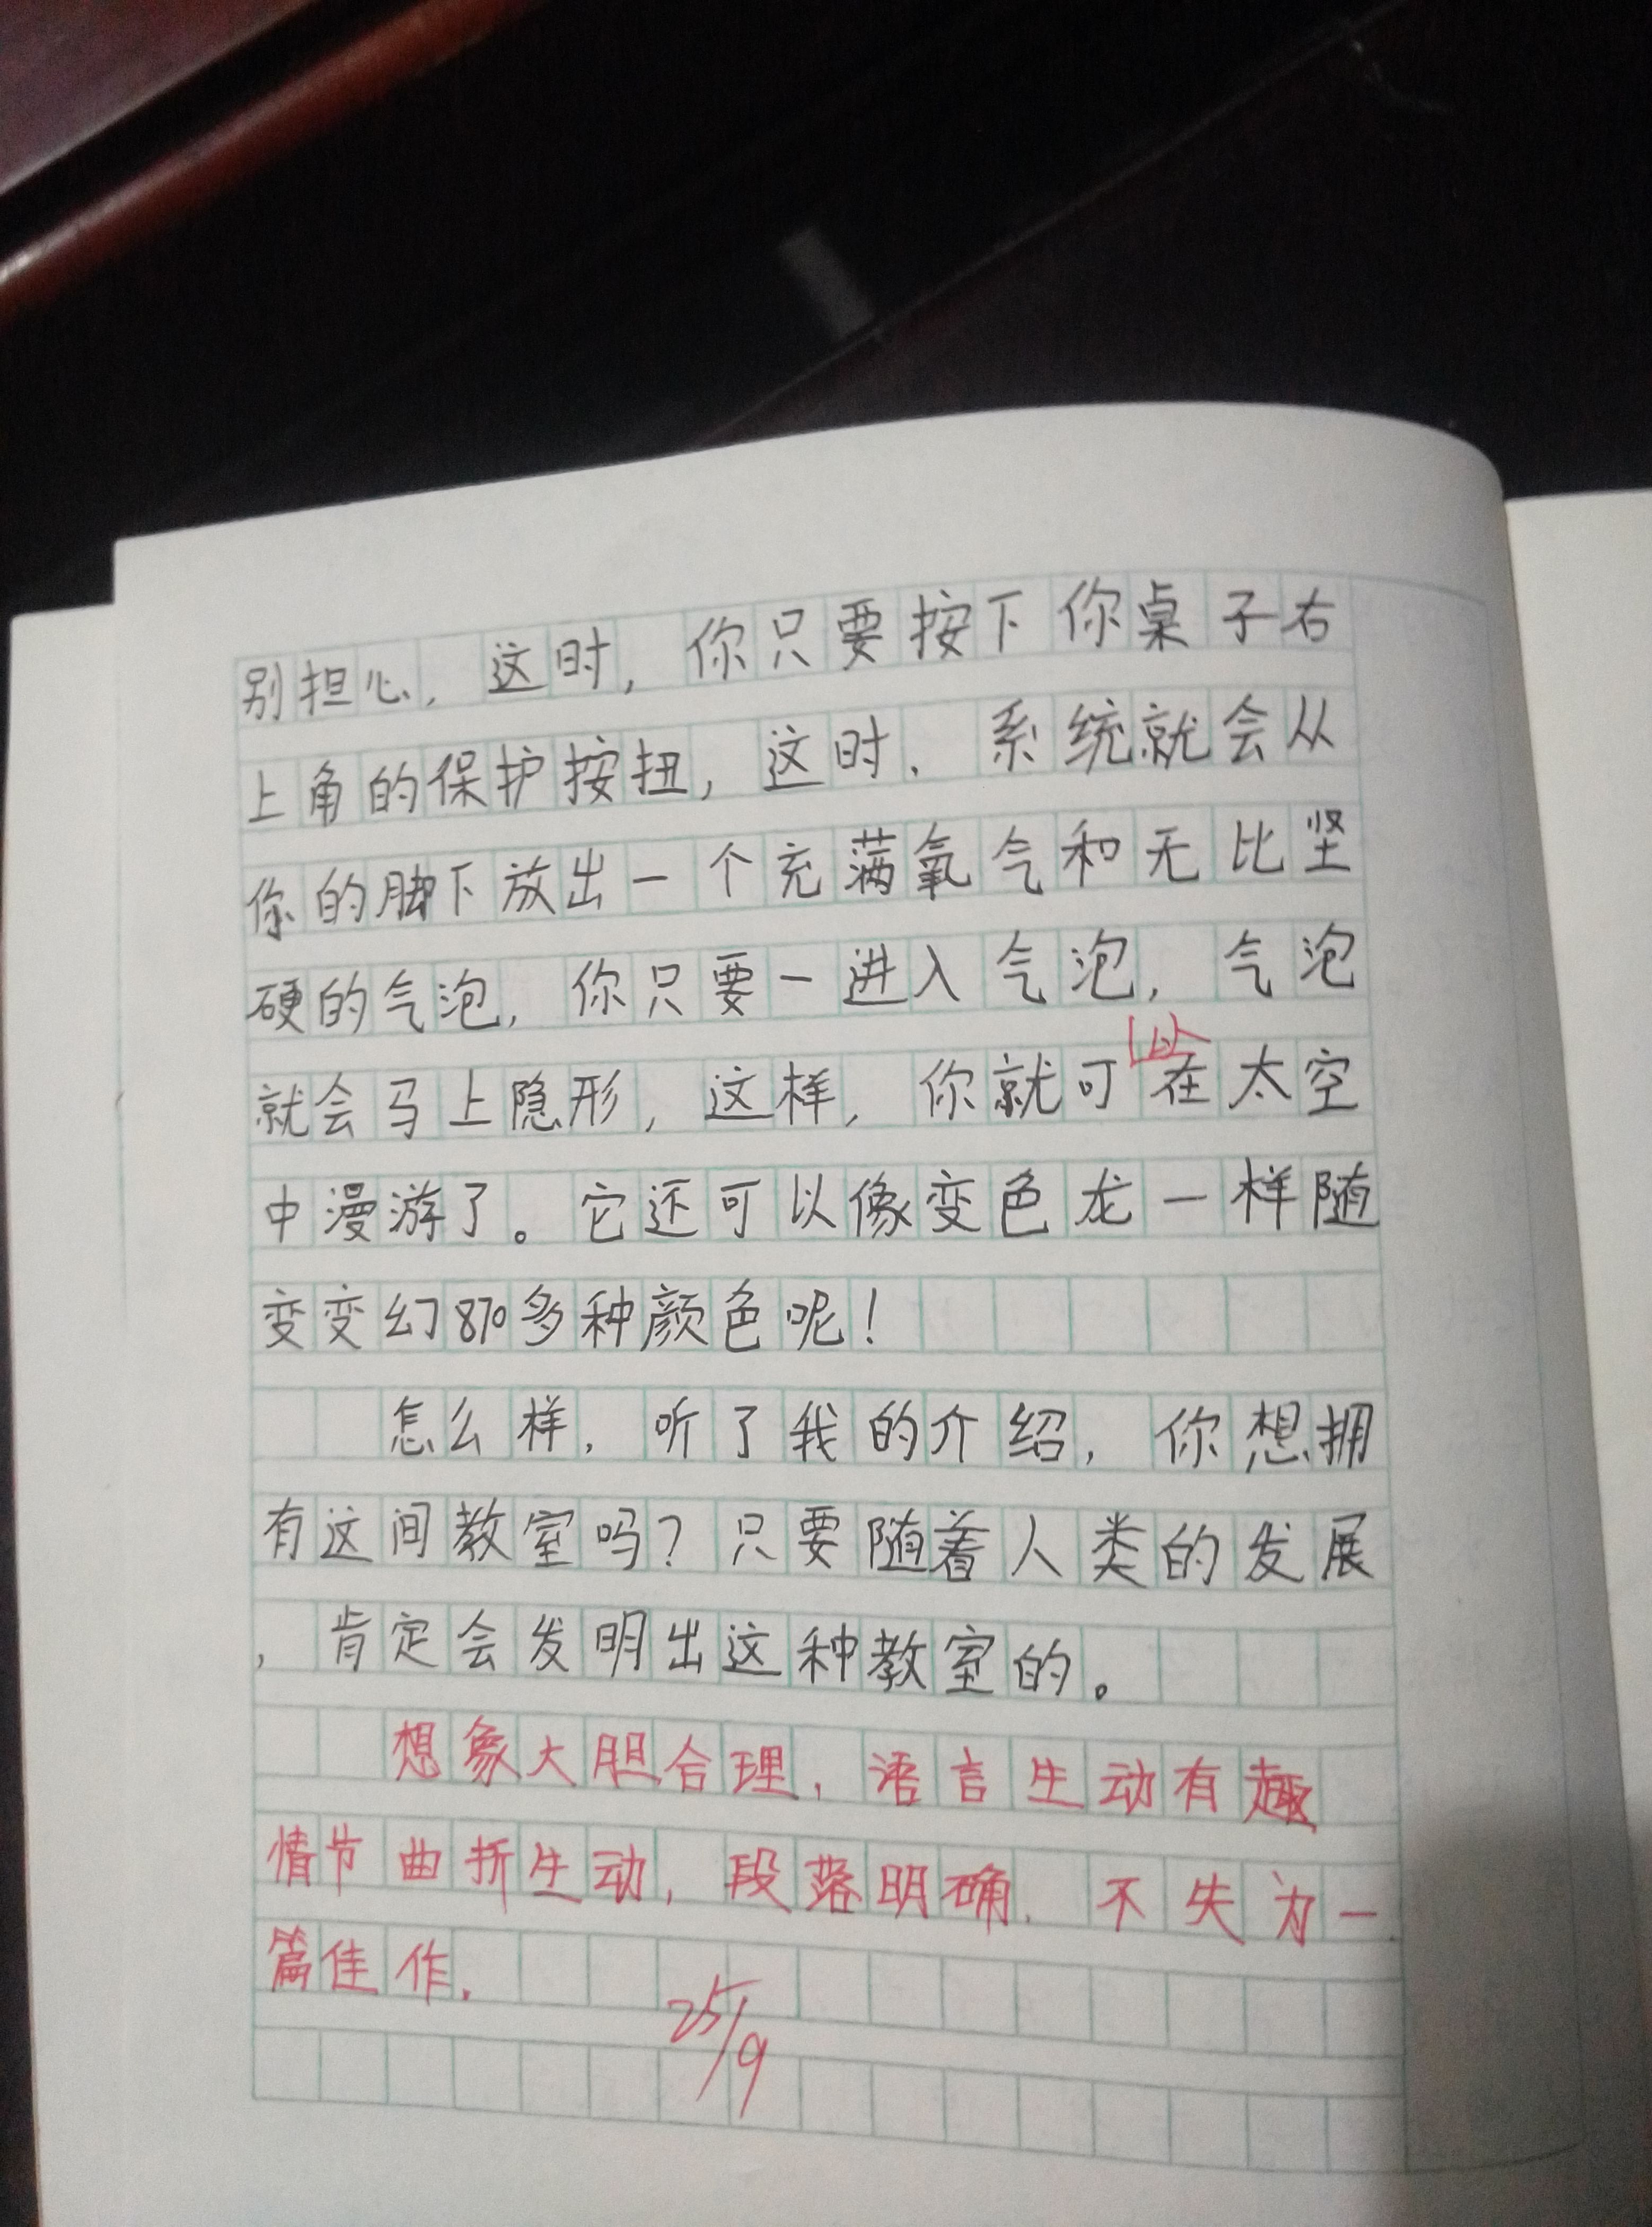 别担心，这时，你只要按下你桌子右
上角的保护按扭，这时，系统就会从
你的脚下放出一个充满氧气和无比坚
硬的气泡，你只要一进入气泡，气泡
以
就会马上隐形，这样，你就可在太空
中漫游了。它还可以像变色龙一样随
变变幻870多种颜色呢！
怎么样，听了我的介绍，你想拥
有这间教室吗？只要随着人类的发展
，肯定会发明出这种教室的。
想象大胆合理，语言生动有趣
情节曲折生动，段落明确，不失为一
篇佳作．
25/9